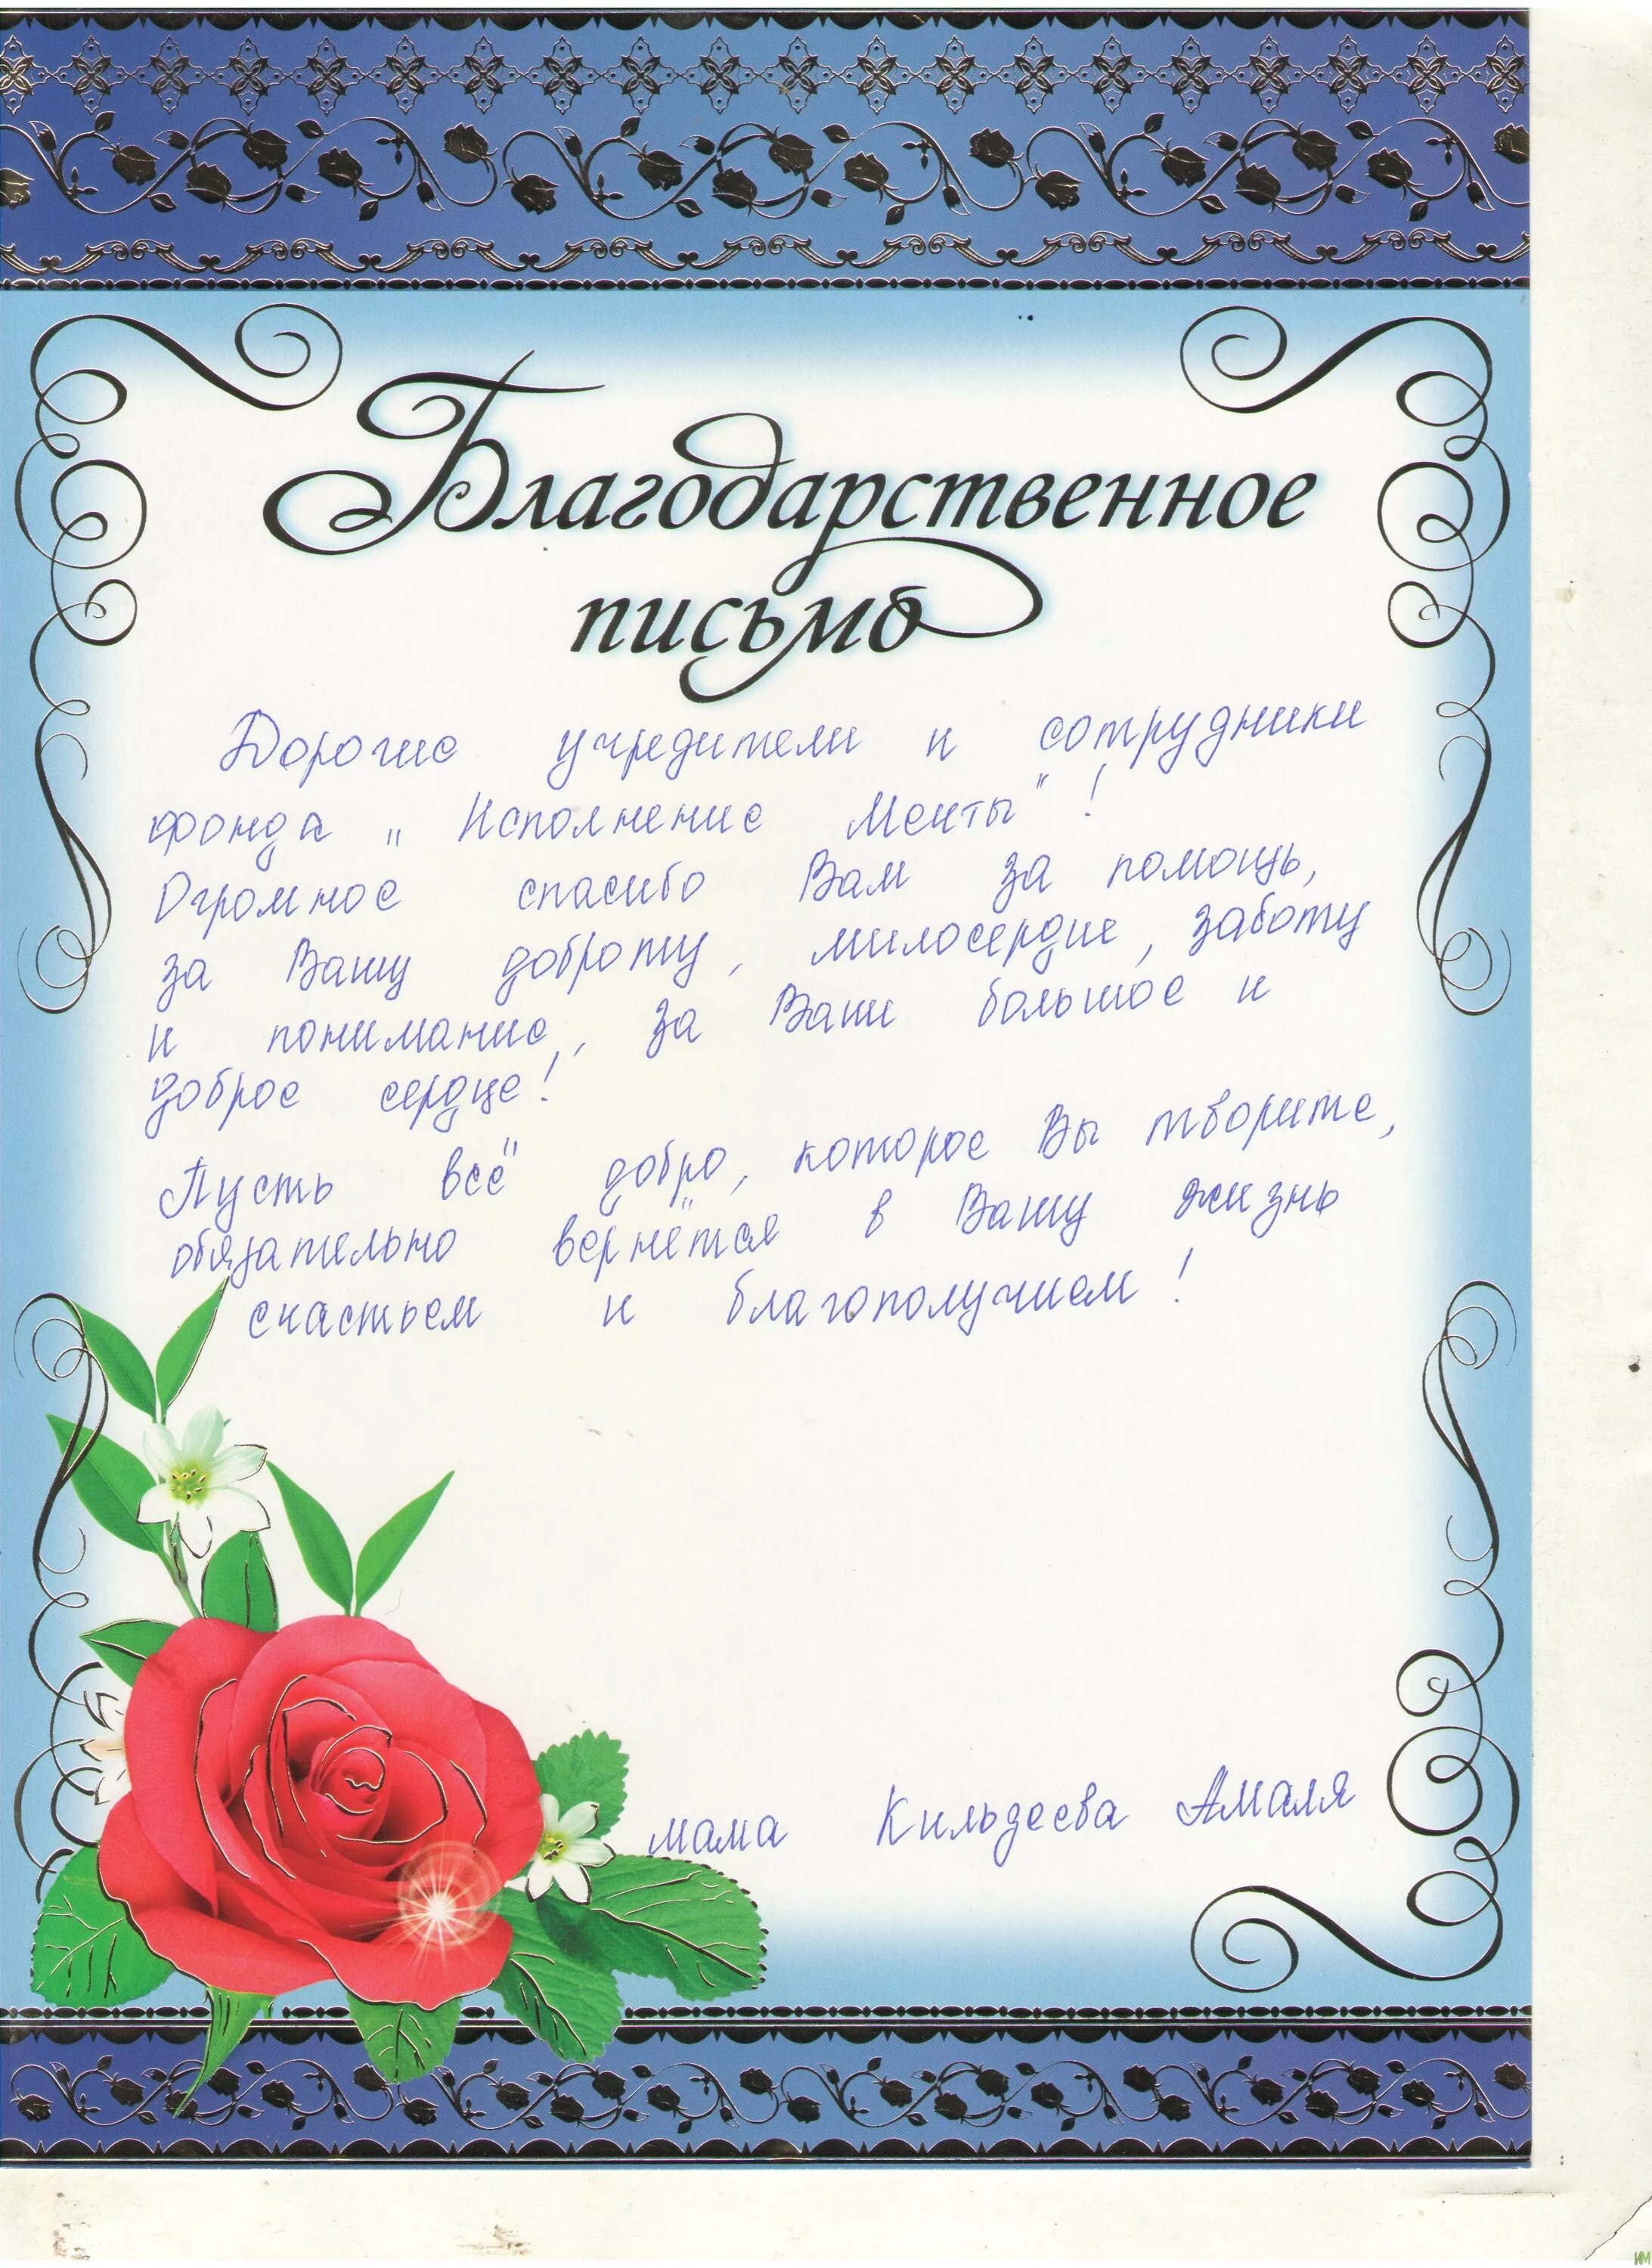 Благодарственное
письмо
Дорогие учредители и сотрудники
фонда „Исполнение Мечты"!
Огромное спасибо Вам за помощь,
за Вашу доброту, милосердие, заботу
и понимание, за Ваши большое и
доброе сердце!
Пусть всё добро, которое Вы творите,
обязательно вернётся в Вашу жизнь
счастьем и благополучием!
мама Кильдеева Амаля